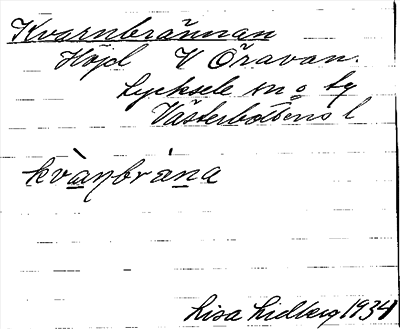 Kvarnbrännan
Höjd V Öravan.
Lycksele sn o tg
Västerbottens l
kvàṇbrána
Lisa Lidberg 1934